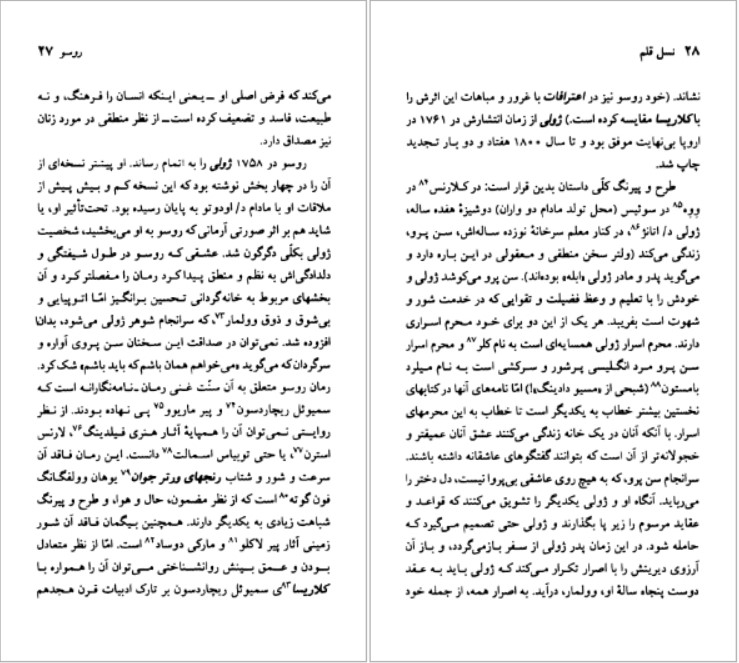 روسو ۲۷
می‌کند که فرض اصلی او ــ یعنی اینکه انسان را فرهنگ، و نه
طبیعت، فاسد و تضعیف کرده است ــ از نظر منطقی در مورد زنان
نیز مصداق دارد.
روسو در ۱۷۵۸ ژولی را به اتمام رساند. او پیشتر نسخه‌ای از
آن را در چهار بخش نوشته بود که این نسخه کم و بیش پیش از
ملاقات او با مادام د/ اودوتو به پایان رسیده بود. تحت‌تأثیر او، یا
شاید هم بر اثر صورتی آرمانی که روسو به او می‌بخشید، شخصیت
ژولی بکلّی دگرگون شد. عشقی که روسو در طول شیفتگی و
دلدادگی‌اش به نظم و منطق پیدا کرد رمان را مفصلتر کرد و آن
بخشهای مربوط به خانه‌گردانی تحسین برانگیز امّا اتوپیایی و
بی‌شوق و ذوق وولمار۷۳، که سرانجام شوهر ژولی می‌شود، بدان
افزوده شد. نمی‌توان در صداقت این سختان سن پروی آواره و
سرگردان که می‌گوید «می‌خواهم همان باشم که باید باشم» شک کرد.
رمان روسو متعلق به آن سنّت غنی رمان ـ نامه‌نگارانه است که
سمیوئل ریچاردسون۷۴ و پیر ماریوو۷۵ پی نهاده بودند. از نظر
روایتی نمی‌توان آن را همپایهٔ آثار هنری فیلدینگ۷۶، لارنس
استرن۷۷، یا حتی توبیاس اسمالت۷۸ دانست. این رمان فاقد آن
سرعت و شور و شتاب رنجهای ورتر جوان۷۹ یوهان وولفگانگ
فون گوته۸۰ است که از نظر مضمون، حال و هوا، و طرح و پیرنگ
شباهت زیادی به یکدیگر دارند. همچنین بیگمان فاقد آن شور
زمینی آثار پیر لاکلو۸۱ و مارکی دوساد۸۲ است. امّا از نظر متعادل
بودن و عمق بینش روانشناختی می‌توان آن را همواره با
کلاریسا۸۳ی سمیوئل ریچاردسون بر تارک ادبیات قرن هجدهم
۲۸ نسل قلم
نشاند. (خود روسو نیز در اعترافات با غرور و مباهات این اثرش را
با کلاریسا مقایسه کرده است.) ژولی از زمان انتشارش در ۱۷۶۱ در
اروپا بی‌نهایت موفق بود و تا سال ۱۸۰۰ هفتاد و دو بار تجدید
چاپ شد.
طرح و پیرنگ کلّی داستان بدین قرار است: در کلارنس۸۴ در
وِوِه۸۵ در سوئیس (محل تولد مادام دو واران) دوشیزهٔ هفده ساله،
ژولی د/ اتانژ۸۶، در کنار معلم سرخانهٔ نوزده ساله‌اش، سن پرو،
زندگی می‌کند (ولتر سخن منطقی و معقولی در این باره دارد و
می‌گوید پدر و مادر ژولی «ابله» بوده‌اند). سن پرو می‌کوشد ژولی و
خودش را با تعلیم و وعظ فضیلت و تقوایی که در خدمت شور و
شهوت است بفریبد. هر یک از این دو برای خود محرم اسراری
دارند. محرم اسرار ژولی همسایه‌ای است به نام کلر۸۷ و محرم اسرار
سن پرو مرد انگلیسی پرشور و سرکشی است به نام میلرد
بامستون۸۸ (شبحی از «مسیو دادینگ»!) امّا نامه‌های آنها در کتابهای
نخستین بیشتر خطاب به یکدیگر است تا خطاب به این محرمهای
اسرار. با آنکه آنان در یک خانه زندگی می‌کنند عشق آنان عمیقتر و
خجولانه‌تر از آن است که بتوانند گفتگوهای عاشقانه داشته باشند.
سرانجام سن پرو، که به هیچ روی عاشقی بی‌پروا نیست، دل دختر را
می‌رباید. آنگاه او و ژولی یکدیگر را تشویق می‌کنند که قواعد و
عقاید مرسوم را زیر پا بگذارند و ژولی حتی تصمیم می‌گیرد که
حامله شود. در این زمان پدر ژولی از سفر بازمی‌گردد، و باز آن
آرزوی دیرینش را با اصرار تکرار می‌کند که ژولی باید به عقد
دوست پنجاه سالهٔ او، وولمار، درآید. به اصرار همه، از جمله خود